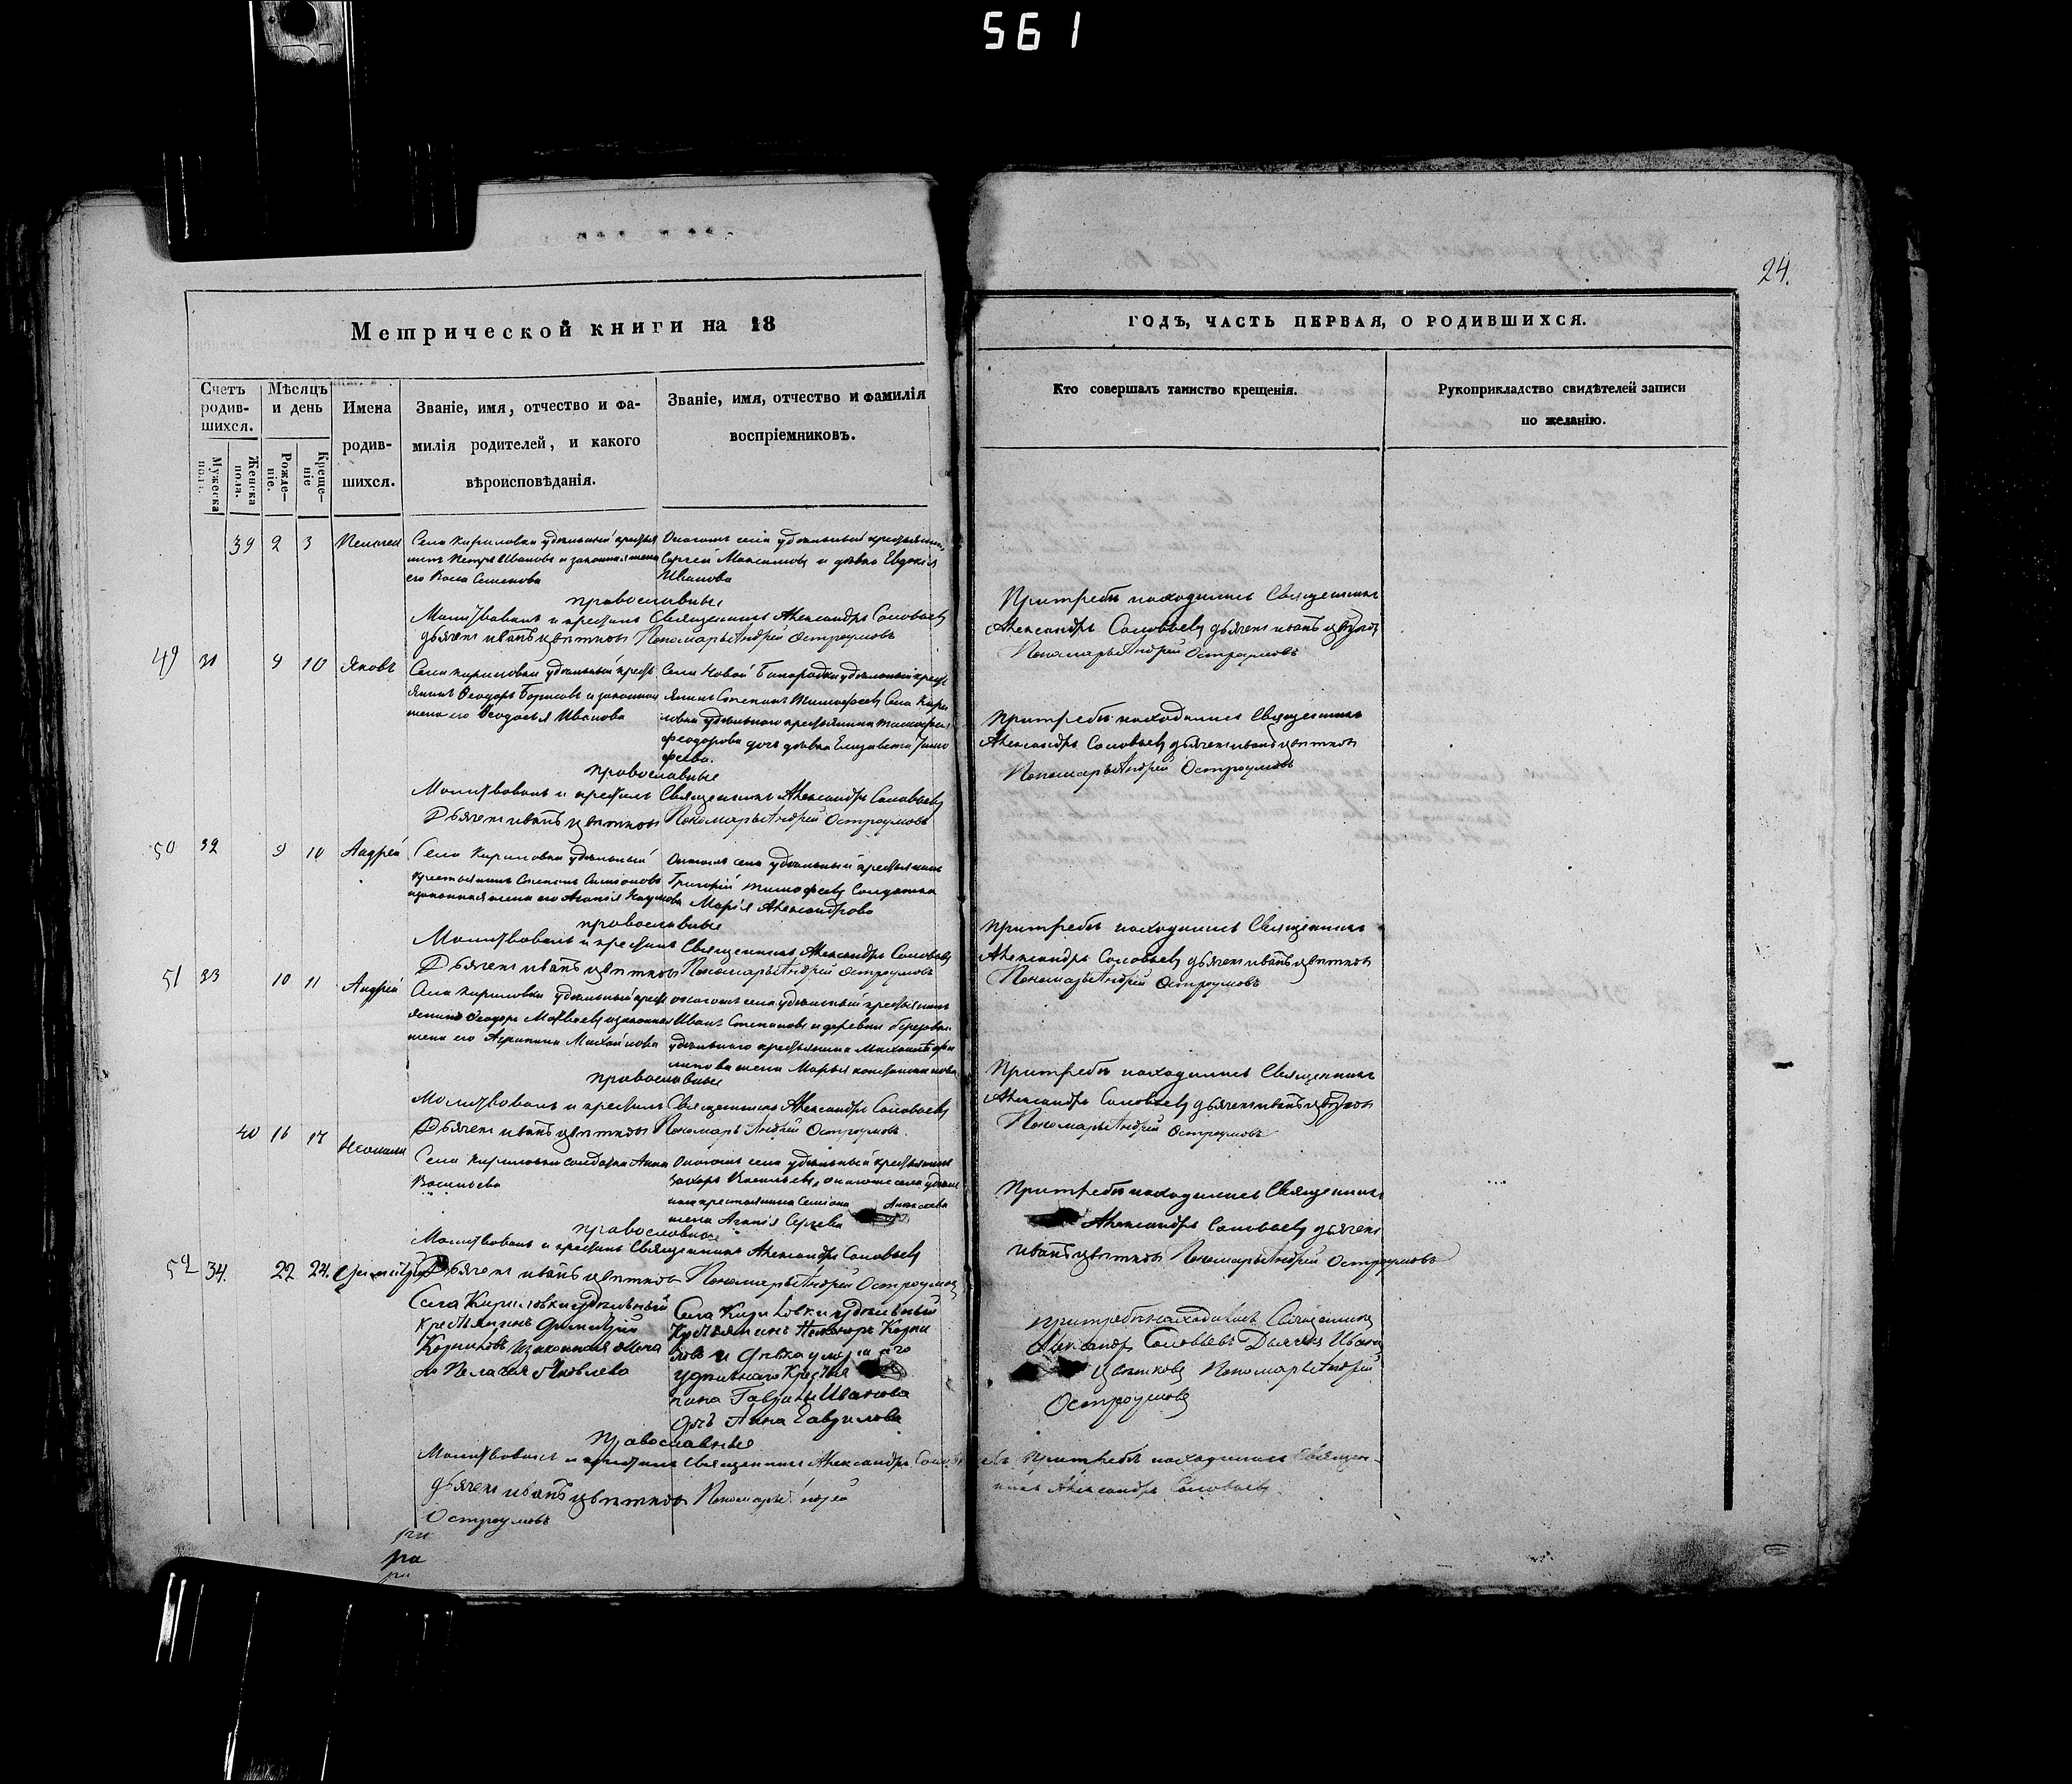 561
24.
Метрической книги на 18
ГОДЪ, ЧАСТЬ ПЕРВАЯ, О РОДИВШИХСЯ.
Счетъ родив-шихся.
Мужеска пола.
Женска пола.
Мѣсяцъ и день
Рожде-ніе.
Креще-ніе
Имена
родив-
шихся.
Званіе, имя, отчество и фа-
милія родителей, и какого
вѣроисповѣданія.
Званіе, имя, отчество и фамилія
воспріемниковъ.
Кто совершалъ таинство крещенія.
Рукоприкладство свидѣтелей записи
по желанію.
39 2 3 Пелагея
Села Кириловки удѣльный крестья
нинъ Петръ Ивановъ и законная жена
его Семенова
Онагожъ села удѣльный крестьянинъ
Сергей Максимовъ и дѣвка Евдокія
Иванова
православные
Молитвовалъ и крестилъ Священникъ Александръ Соловьевъ
дьячекъ иванъ цвѣтковъ Пономарь Андрей Остроумовъ
При требѣ находились Священникъ
Александръ Соловьевъ дьячекъ иванъ цвѣтковъ
Пономарь Андрей Остроумовъ
49 31 9 10 Яковъ
Села Кириловки удѣльный кресть
янинъ Феодоръ Борисовъ и законная
жена его Феодосья Иванова
Села Новой удѣльный кресть
янинъ Степанъ Тимофеевъ Села Кири
ловки удѣльнаго крестьянина Тимофея
Феодорова дочь дѣвка Елизавета Тимо
феева.
православные
Молитвовалъ и крестилъ Священникъ Александръ Соловьевъ
Дьячекъ иванъ цвѣтковъ Пономарь Андрей Остроумовъ
При требѣ находились Священникъ
Александръ Соловьевъ дьячекъ иванъ цвѣтковъ
Пономарь Андрей Остроумовъ
50 32 9 10 Андрей
Села Кириловки удѣльный
крестьянинъ Степанъ
законная жена его Агапія Наумова
Онагожъ села удѣльный крестьянинъ
Григорій Тимофеевъ Солдатка
Марія Александрова
православные
Молитвовалъ и крестилъ Священникъ Александръ Соловьевъ
Дьячекъ иванъ цвѣтковъ Пономарь Андрей Остроумовъ
При требѣ находились Священникъ
Александръ Соловьевъ дьячекъ иванъ цвѣтковъ
Пономарь Андрей Остроумовъ
51 33 10 11 Андрей
Села Кириловки удѣльный кресть
янинъ Феодоръ Матвеевъ и законная
жена его Агрипина Михайлова
онагожъ села удѣльный крестьянинъ
Иванъ Степановъ и деревни
удѣльнаго крестьянина
жена Марья константинова
православные
Молитвовалъ и крестилъ Священникъ Александръ Соловьевъ
Дьячекъ иванъ цвѣтковъ Пономарь Андрей Остроумовъ.
При требѣ находились Священникъ
Александръ Соловьевъ дьячекъ иванъ цвѣтковъ
Пономарь Андрей Остроумовъ
40 16 17
Села Кириловки солдатка Анна
Васильева
Онагожъ села удѣльный крестьянинъ
Захаръ Васильевъ, онагоже села удѣль
наго крестьянина Семіона
жена Агапія Сергеева
православное
Молитвовалъ и крестилъ Священникъ Александръ Соловьевъ
Дьячекъ иванъ цвѣтковъ Пономарь Андрей Остроумовъ
При требѣ находились Священникъ
Александръ Соловьевъ дьячекъ
иванъ цвѣтковъ Пономарь Андрей Остроумовъ
52 34. 22 24. Димитрій
Села Кириловки удѣльный
крестьянинъ Димитрій
Корниловъ и законная жена
его Пелагея Яковлева
Села Кириловки удѣльный
Крестьянинъ Никаноръ Корни
ловъ и дѣвка умершаго
удѣльнаго Крестья
нина Гаврилы Иванова
дочь Анна Гаврилова
православные
Молитвовалъ и крестилъ Священникъ Александръ Соловьевъ
дьячекъ иванъ цвѣтковъ Пономарь Андрей
Остроумовъ
при требѣ находились Священникъ
Александръ Соловьевъ Дьячекъ Иванъ
Цвѣтковъ Пономарь Андрей
Остроумовъ
При требѣ находились Священ-
никъ Александръ Соловьевъ.